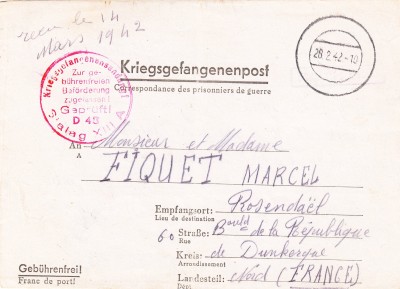 reçu le 14
Mars 1942
Kriegsgefangenensendung
Zur ge-
bührenfreien
Beförderung
zugelassen!
Geprüft!
D 43
Stalag XIII A
28.2.42.-10
Kriegsgefangenenpost
Correspondance des prisonniers de guerre
An Monsieur et Madame
À
FIQUET MARCEL
Empfangsort: Rosendaël
Lieu de destination
60 Straße: Bould de la République
Rue
Kreis: de Dunkerque
Arrondissement
Landesteil: Nord (FRANCE)
Dépt
Gebührenfrei!
Franc de port!